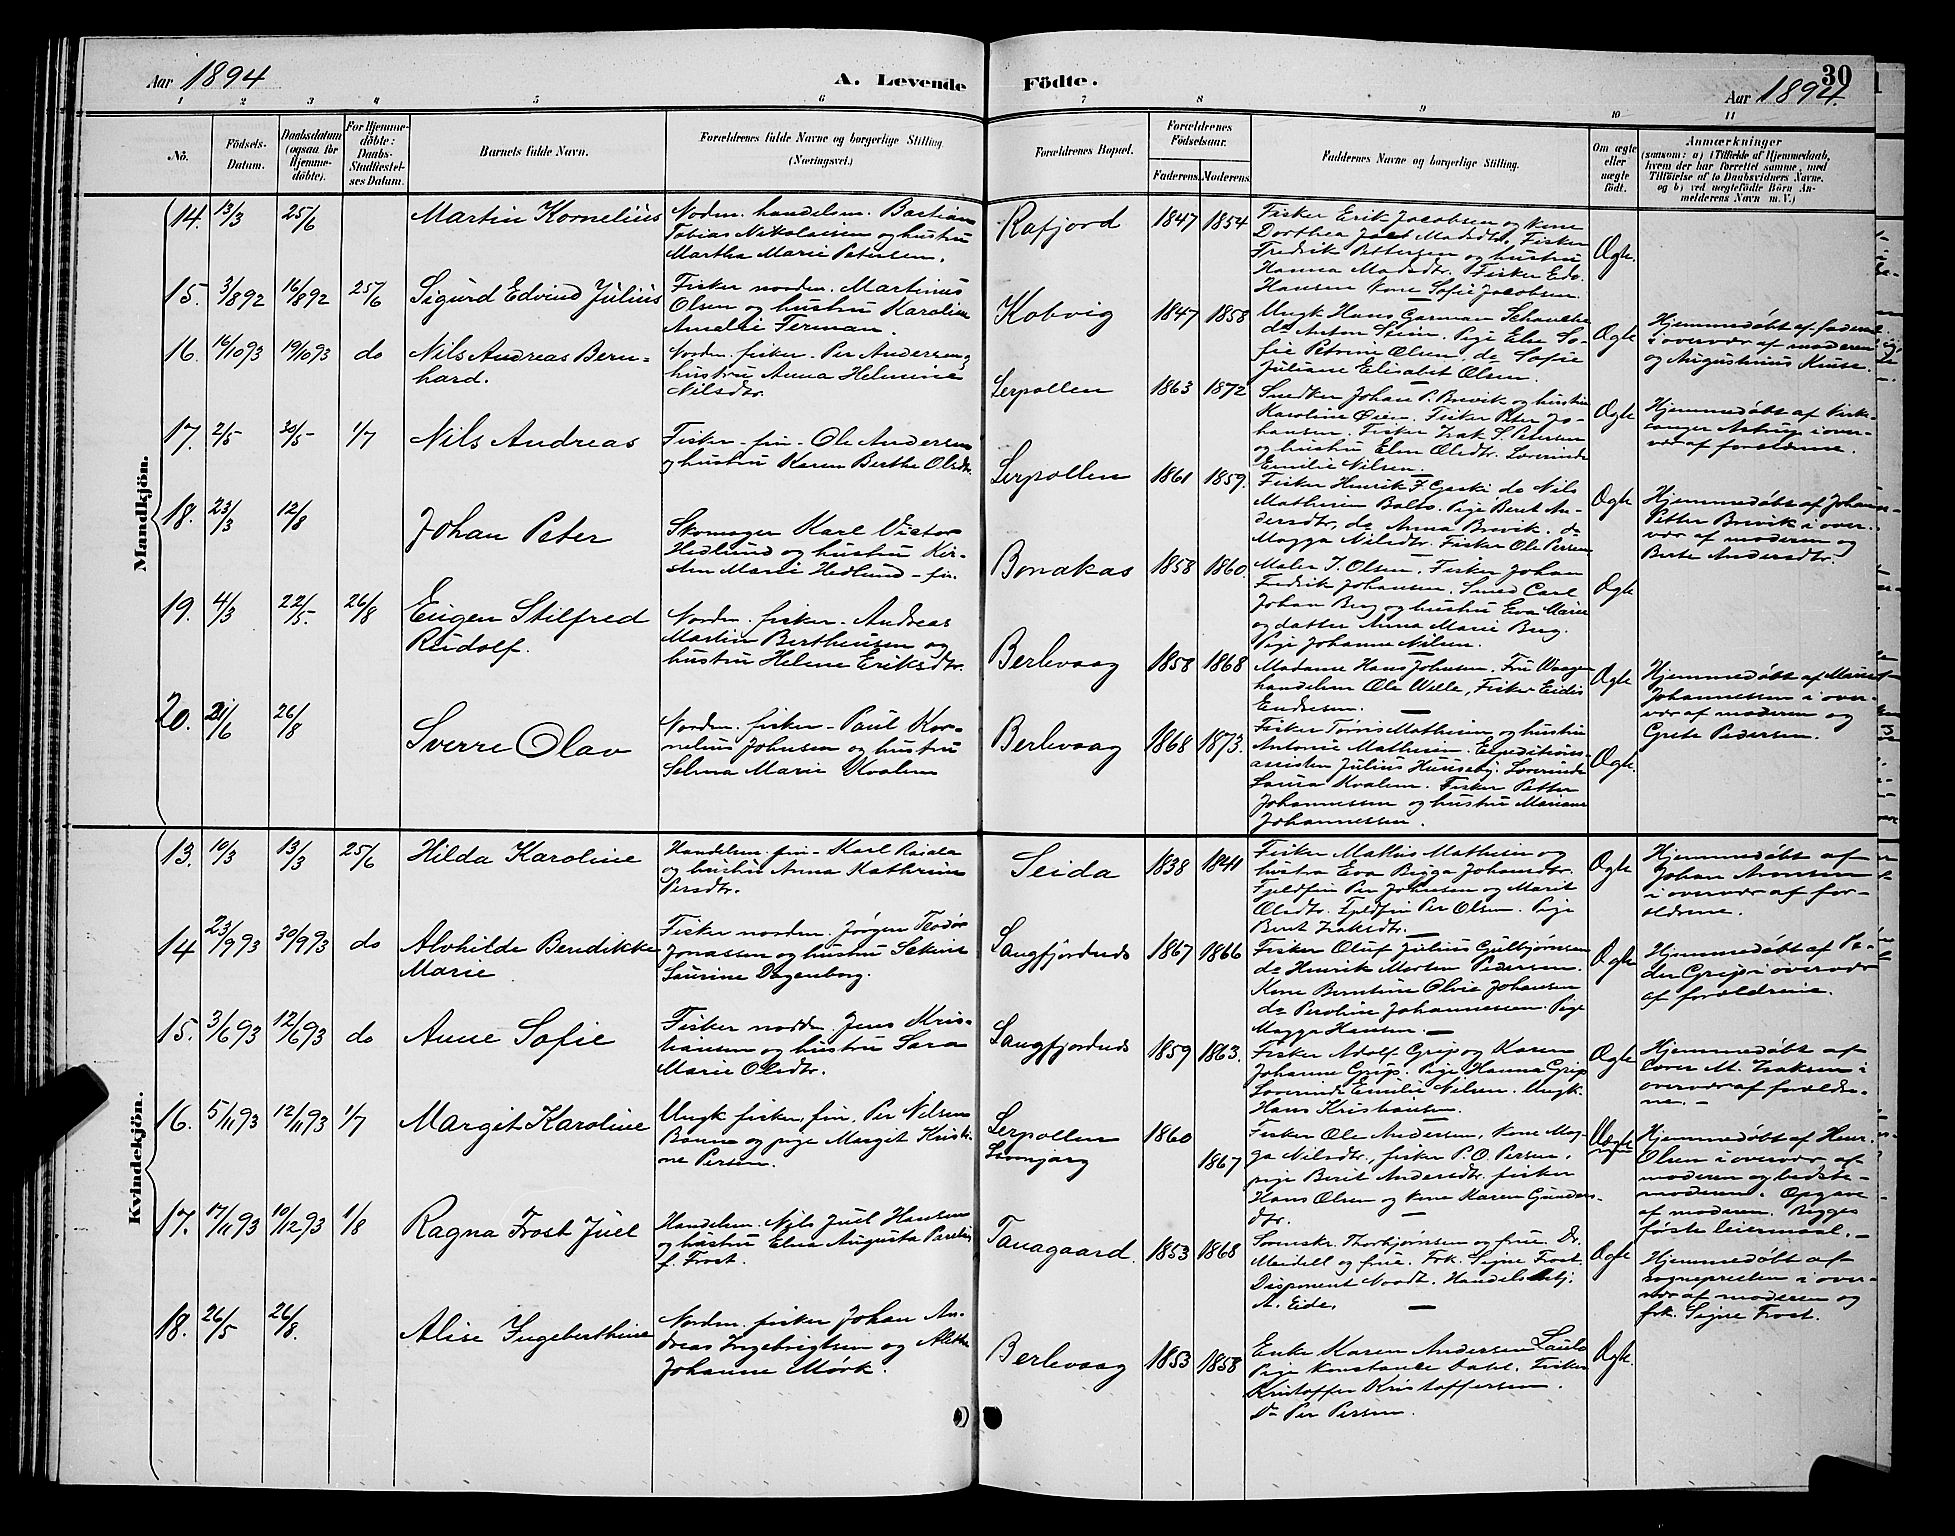 Aar 1894
A. Levende
Födte.
30
Aar 1894.
1 2 3 4 5 6 7 8 9 10 11
No.
Födsels-
Datum.
Daabsdatum
(ogsaa for
Hjemme-
döbte).
For Hjemme-
döbte:
Daabs-
Stadfæstel-
ses Datum.
Barnets fulde Navn.
Forældrenes fulde Navne og borgerlige Stilling
(Næringsvei.)
Forældrenes Bopæl.
Forældrenes
Födselsaar.
Faderens.
Moderens.
Faddernes Navne og borgerlige Stilling.
Om ægte
eller
uægte
födt.
Anmærkninger
(saasom: a) i Tilfælde af Hjemmedaab,
hvem der har forrettet samme, med
Tilföielse af to Daabsvidners Navne,
og b) ved uægtefödte Börn An-
melderens Navn m. V.)
Mandkjön.
14. 13/3 25/6 Martin Kornelius
Nordm. handelsm. Bastian
Tobias Nikolaisen og hustru
Martha Marie Petersen.
Rafjord 1847 1854
Fisker Erik Jacobsen og kone
Dorthea Madsdtr. Fisker
Fredrik Pettersen og hustru
Hanna Madsdtr. Fisker Edv.
Hansen kone Sofie Jacobsen.
Ægte
15. 3/892 16/892 25/6 Sigurd Edvind Julius
Fisker nordm. Martinus
Olsen og hustru Karoline
Amalie Ferman.
Kobvig 1847 1858
Ungk. Hans Garman Schanche
do Anton Stein. Pige Else So-
fie Petrine Olsen. do Sofie
Juliane Elisabet Olsen.
Ægte
Hjemmedøbt af faderen
i overvær af moderen
og Augustinus Kruse.
16. 14/1093 19/1093 do Nils Andreas Bern-
hard.
Nordm. fisker. Per Andersen og
hustru Anna Helmine
Nilsdtr.
Lerpollen 1863 1872
Snedker Johan P. Brevik og hustru
Karoline Øien. Fisker Peter Jo-
hansen. Fisker Isak S. Petersen
og hustru Elen Olsdtr. Lærerinde
Emilie Nilsen.
Ægte
Hjemmedøbt af Kirke-
sanger Astrup i over-
vær af forældrene.
17. 2/5 30/5 1/7 Nils Andreas
Fisker - fin - Ole Andersen
og hustru Karen Berthe Olsdtr.
Lerpollen 1861 1859.
Fisker Henrik F. do Nils
Mathisen Balto. Pige Berit An-
dersdtr, do Anna Brevik. do
Magga Nilsdtr. Fisker Ole Persen
Ægte
Hjemmedøbt af Johan
Petter Brevik i over-
vær af moderen og
Berte Andersdtr.
18. 23/3 12/8 Johan Peter
Skomager Karl Victor
Hedlund og hustru Kir-
sten Marie Hedlund - fin.
Bonakas 1858 1860.
Maler J. Olsen. Fisker Johan
Fredrik Johansen. Smed Carl
Johan Berg og hustru Eva Marie
og datter Anna Marie Berg.
Pige Johanne Nilsen.
Ægte
19. 4/3 22/5 26/8 Eugen Stilfred
Rudolf.
Nordm. fisker. Andreas
Martin Bertheusen og
hustru Helene Eriksdtr.
Berlevaag 1858 1868
Madame Hans Johnsen. Fru Waagen
handelsm Ole Wille, Fisker Eidis
Endresen.
Ægte
Hjemmedøbt af
Johannessen i over-
vær af moderen og
Grete Pedersen.
20. 21/6 26/8 Sverre Olav
Nordm. fisker - Paul Kor-
nelius Johnsen og hustru
Selma Marie Kvalem
Berlevaag 1868 1873.
Fisker Mathisen og hustru
Antonie Mathisen. Expeditions-
assistent Julius Huseby. Lærerinde
Laura Kvalem. Fisker Petter
Johannessen og hustru Mariane
Johannessen.
Ægte.
Kvindekjön.
13. 10/3 13/3 25/6 Hilda Karoline
Handelsm. fin - Karl
og hustru Anna Kathrine
Persdtr.
Seida 1838 1841
Fisker Mathis Mathisen og
hustru Eva Brigga Johansdtr.
Fjeldfin Per Johnsen og Marit
Olsdtr. Fjeldfin Per Olsen. Pige
Berit Isaksdtr.
Ægte
Hjemmedøbt af
Johan Aronsen
i overvær af for-
ældrene.
14 23/993 30/993 do Alvhilde Bendikke
Marie
Fisker nordm. Jørgen Teodor
Jonassen og hustru
Laurine Dagenborg.
Langfjordnes 1867 1866
Fisker Oluf Julius Gulbjørnsen
do Henrik Morten Pedersen.
Kone Berntine Olvie Johansen
do Peroline Johannessen. Pige
Magga Hansen.
Ægte
Hjemmedøbt af Pe-
der Grip i overvær
af forældrene.
15. 3/693 12/693 do Anne Sofie
Fisker nordm. Jens Kris-
tiansen og hustru Sara
Marie Olsdtr.
Langfjordnes 1859 1863.
Fisker Adolf Grip og Karen
Johanne Grip. Pige Hanna Grip
Lærerinde Emilie Nilsen. Ungk.
Hans Kristiansen.
Ægte
Hjemmedøbt af
M. Isaksen i
overvær af forældre-
ne. -
16. 5/1193 12/1193 1/7 Margit Karoline
Ungk. fisker. fin. Per Nilsen
Bonne og pige Margit Kristi-
ne Persen.
Lerpollen
1860
1867
Fisker Ole Andersen, Kone Mag-
ga Nilsdtr., fisker P. O. Persen,
pige Berit Andersdtr. fisker
Hans Olsen og kone Karen Gunders-
dtr.
Uægte
Hjemmedøbt af Henr.
Olsen i overvær af
moderen og bedste-
moderen. Opgave
af moderen. Begges
første leiermaal. -
17. 17/1193 10/1293 1/8 Ragna Frost Juel
Handelsm. Nils Juel Hansen
og hustru Elna Augusta
f. Frost.
Tanagaard. 1853 1868
Thorbjørnsen og frue. Dr.
Meidell og frue. Frk. Signe Frost.
Disponent Noodt. Handelsbetj.
A. Eide.
Ægte
Hjemmedøbt af
sognepresten i over-
vær af moderen og
frk. Signe Frost.
18. 26/5 26/8. Alise Ingeberthine
Nordm. fisker Johan An-
dreas Ingebrigtsen og Alette
Johanne Mørk.
Berlevaag 1853 1858
Enke Karen Andersen
Pige Konstance Dahl. Fisker
Kristoffer Kristoffersen.
Do Per Persen.
Ægte.